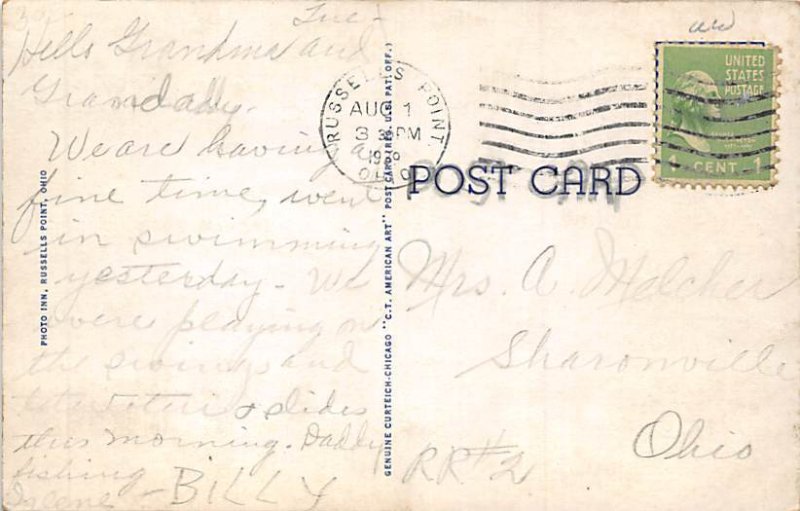 Tue-
Hello Grandma and
Grandaddy.
We are having a
fine time, went
in swimming
yesterday - We
were playing on
the swings and
slides
this morning. Daddy
fishing
- BILLY
PHOTO INN, RUSSELLS POINT, OHIO
GENUINE CURTEICH-CHICAGO "C.T. AMERICAN ART" POST CARD (REG. U.S. PAT. OFF.)
RUSSELLS POINT
AUG 1
PM
OHIO
POST CARD
UNITED
STATES
POSTAGE
1 CENT 1
Mrs. A. Melcher
Sharonville
Ohio
RR#2